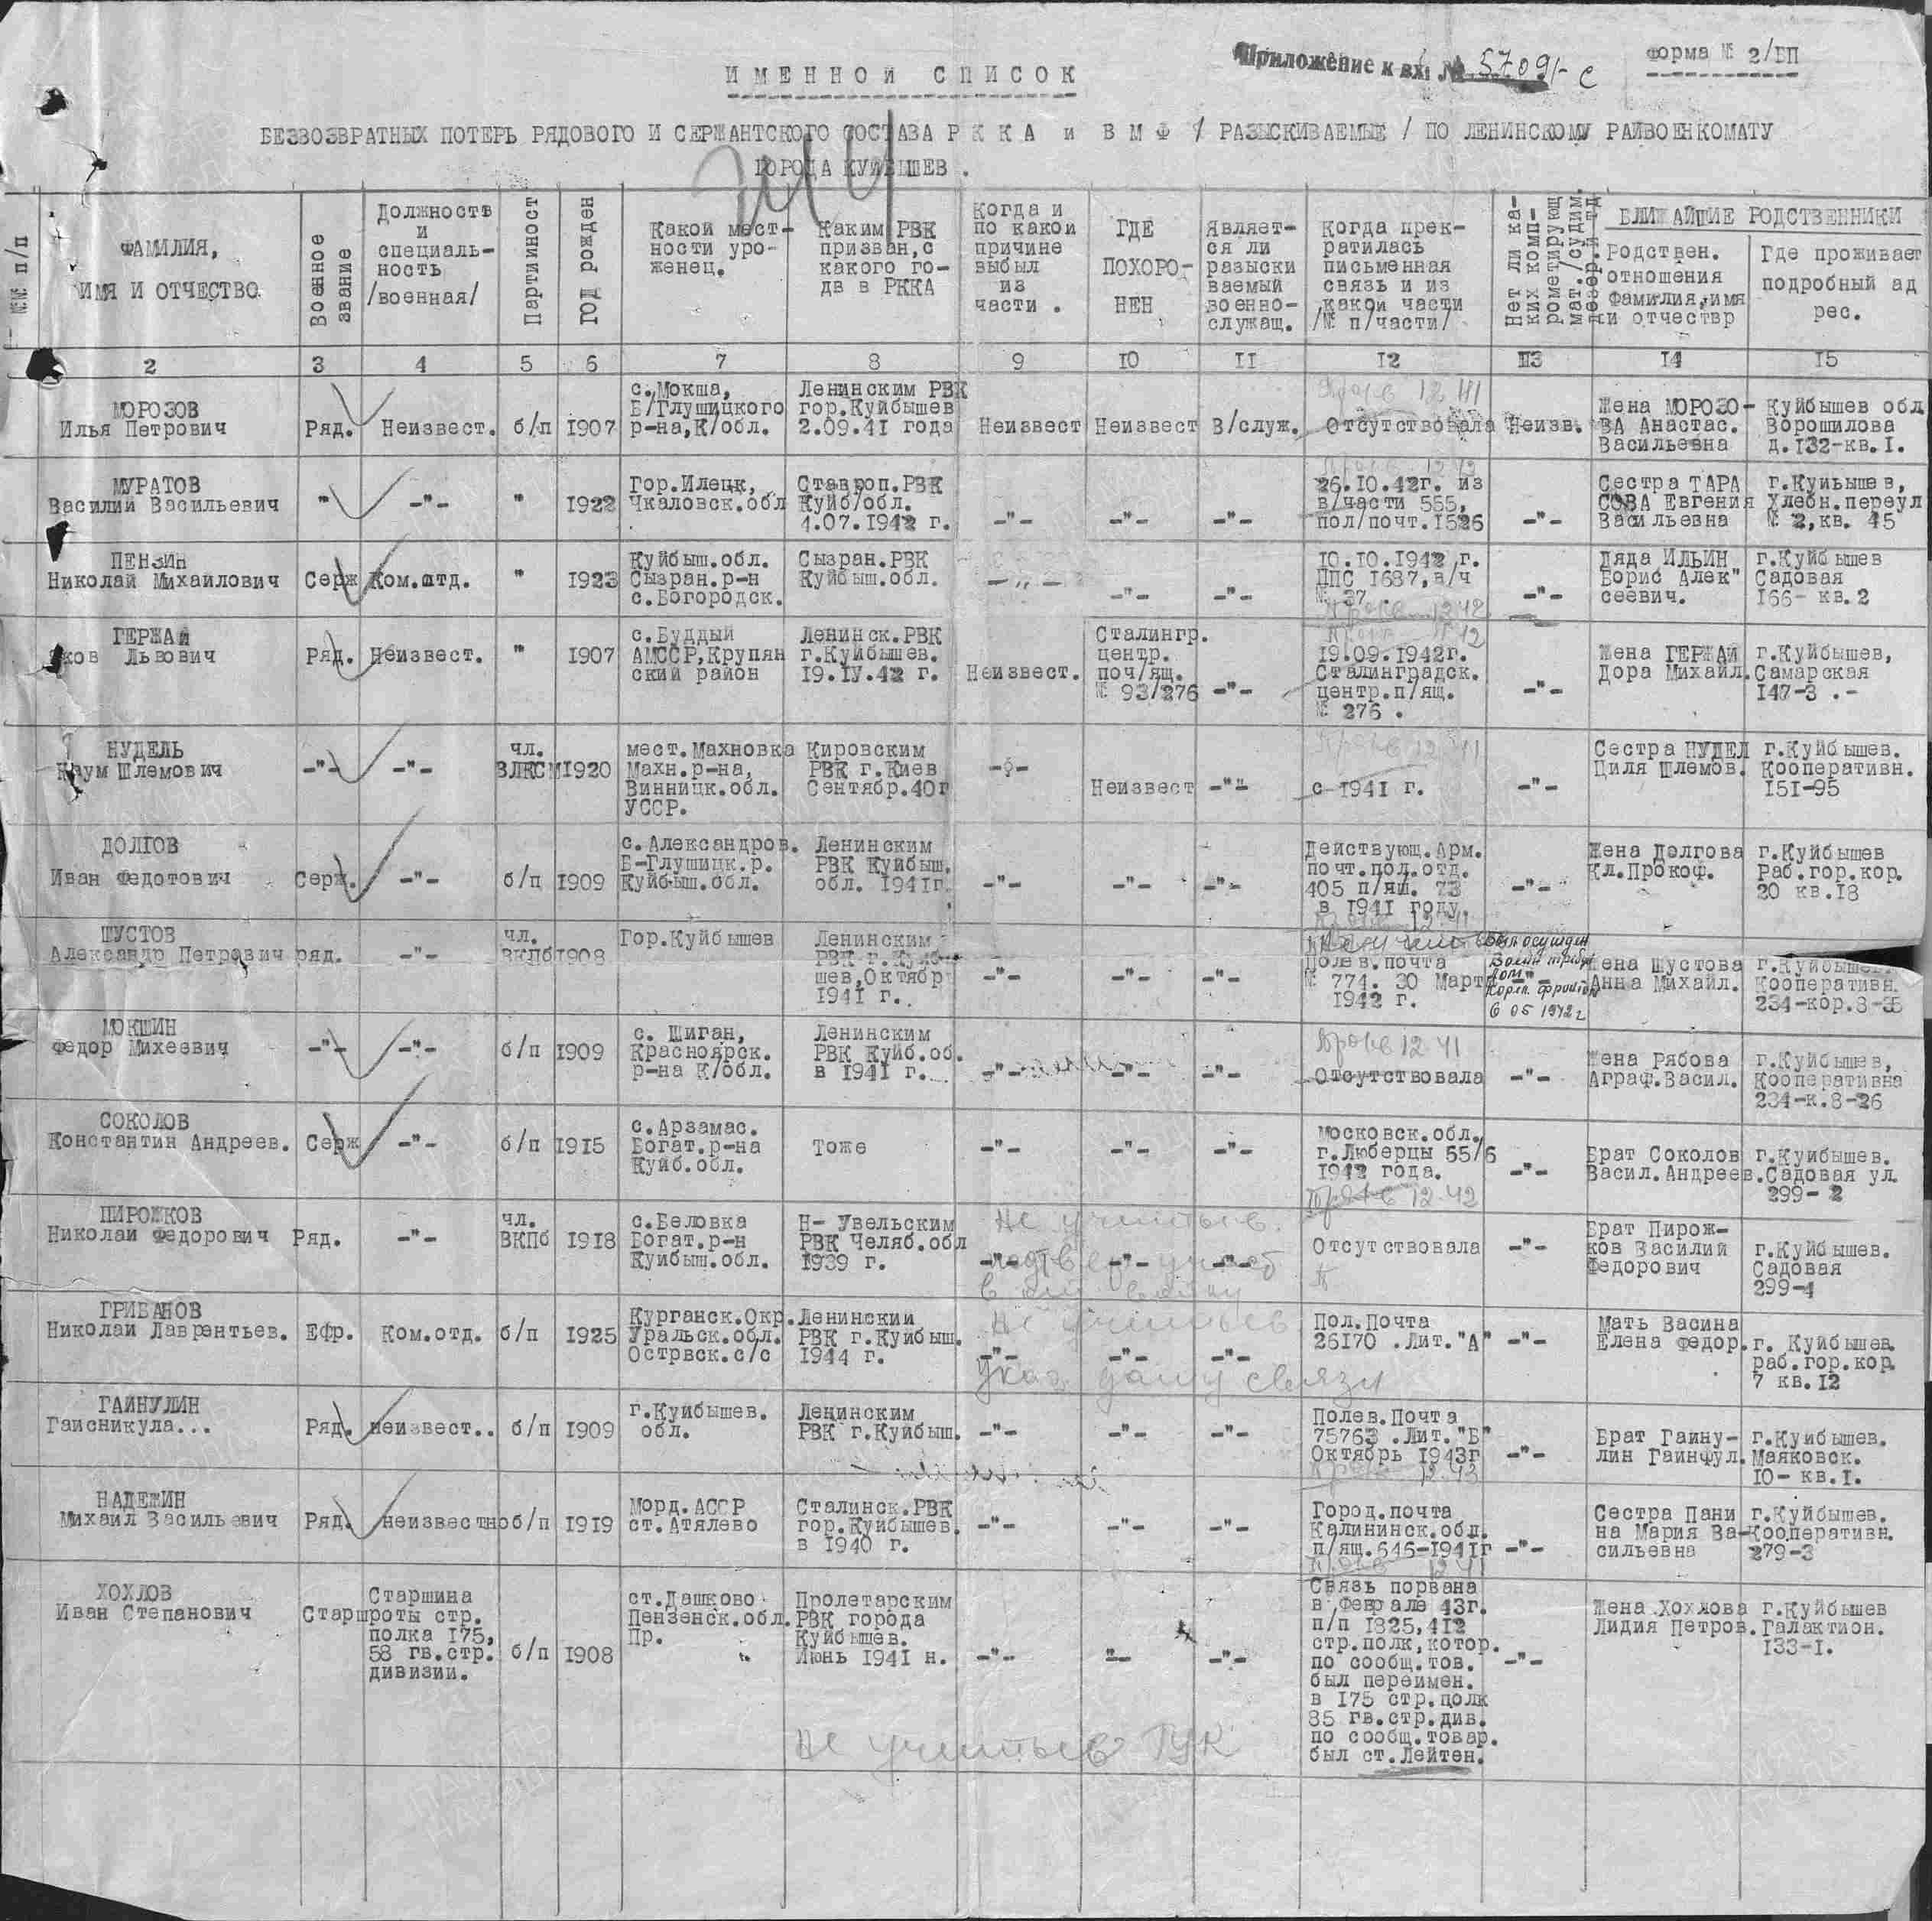 Приложение к вх. № 57091-с
Форма № 2/БП
ИМЕННОЙ СПИСОК
БЕЗВОЗВРАТНЫХ ПОТЕРЬ РЯДОВОГО И СЕРЖАНТСКОГО СОСТАВА РККА и ВМФ / РАЗЫСКИВАЕМЫЕ / ПО ЛЕНИНСКОМУ РАЙВОЕНКОМАТУ
ГОРОДА КУЙБЫШЕВ.
№№ п/п
ФАМИЛИЯ,
ИМЯ И ОТЧЕСТВО.
Военное
звание
Должность
и
специаль-
ность
/военная/
Партийност
ГОД рожден
Какой мест-
ности уро-
женец.
Каким РВК
призван, с
какого го-
дв в РККА
Когда и
по какой
причине
выбыл
из
части .
ГДЕ
ПОХОРО-
НЕН
Являет-
ся ли
разыски
ваемый
военно-
служащ.
Когда прек-
ратилась
письменная
связь и из
какой части
/№ п/части/
Нет ли ка-
ких комп-
рометирующ
мат./судим.
дезер.и тд
БЛИЖАЙШИЕ РОДСТВЕННИКИ
Родствен.
отношения
Фамилия, имя
и отчествр
Где проживает
подробный ад
рес.
2 3 4 5 6 7 8 9 10 11 12 13 14 15
МОРОЗОВ
Илья Петрович
Ряд.
Неизвест.
б/п
1907
с.Мокша,
Б/Глушицкого
р-на,К/обл.
Ленинским РВК
гор.Куйбышев
2.09.41 года
Неизвест
Неизвест
В/служ.
12 41
Отсутствовала
Неизв.
Жена МОРОЗО-
ВА Анастас.
Васильевна
Куйбышев обл
Ворошилова
д.132-кв.1.
МУРАТОВ
Василий Васильевич
"
-"-
"
1922
Гор.Илецк,
Чкаловск.обл
Ставроп.РВК
Куйб/обл.
4.07.1942 г.
-"-
-"-
-"-
12 42
26.10.42г. из
в/части 555,
пол/почт.1526
-"-
Сестра ТАРА
СОВА Евгения
Васильевна
г.Куйбышев,
Хлебн.переул
№ 2,кв. 45
ПЕНЗИН
Николай Михайлович
Серж
Ком.отд.
"
1923
Куйбыш.обл.
Сызран.р-н
с.Богородск.
Сызран.РВК
Куйбыш.обл.
-"-
-"-
-"-
10.10.1942 г.
ППС 1687,в/ч
№ 37 .
12 42
-"-
Дядя ИЛЬИН
Борис Алек"
сеевич.
г.Куйбышев
Садовая
166- кв.2
ГЕРЖАЙ
Яков Львович
Ряд.
Неизвест.
"
1907
с.Буддый
АМССР,Крупян
ский район
Ленинск.РВК
г.Куйбышев.
19.IУ.42 г.
Неизвест.
Сталингр.
центр.
поч/ящ.
№ 93/276
-"-
19.09.1942г.
Сталинградск.
центр.п/ящ.
№ 276 .
-"-
Жена ГЕРЖАЙ
Дора Михайл.
г.Куйбышев,
Самарская
147-3 .-
НУДЕЛЬ
Наум Шлемович
-"-
-"-
чл.
ВЛКСМ
1920
мест.Махновка
Махн.р-на,
Винницк.обл.
УССР.
Кировским
РВК г.Киев
Сентябр.40г
-"-
Неизвест
-"-
12 41
с 1941 г.
-"-
Сестра НУДЕЛ
Циля Шлемов.
г.Куйбышев.
Кооперативн.
151-95
ДОЛГОВ
Иван Федотович
Серж.
-"-
б/п
1909
с.Александров.
Б-Глушицк.р.
Куйбыш.обл.
Ленинским
РВК Куйбыш.
обл. 1941г.
-"-
-"-
-"-
Действующ.Арм.
почт.пол.отд.
405 п/ящ. 73
в 1941 году.
12 41
-"-
Жена Долгова
Кл.Прокоф.
г.Куйбышев
Раб.гор.кор.
20 кв.18
ШУСТОВ
Александр Петрович
ряд.
-"-
чл.
ВКПб
1908
Гор.Куйбышев
Ленинским
РВК г.Куйб-
шев,Октябр
1941 г..
-"-
-"-
-"-
Полев.почта
№ 774. 30 Март
1942 г.
Был осужден
6 05 1942 г
Жена Шустова
Анна Михайл.
г.Куйбышев.
Кооперативн.
234-кор.8-35
МОКШИН
Федор Михеевич
-"-
-"-
б/п
1909
с. Шиган,
Красноярск.
р-на К/обл.
Ленинским
РВК Куйб.об.
в 1941 г..
-"-
-"-
-"-
12 41
Отсутствовала
-"-
Жена Рябова
Аграф.Васил.
г.Куйбышев,
Кооперативна
234-к.8-26
СОКОЛОВ
Константин Андреев.
Серж
-"-
б/п
1915
с.Арзамас.
Богат.р-на
Куйб.обл.
Тоже
-"-
-"-
-"-
Московск.обл.
г.Люберцы 55/6
1942 года.
12 42
-"-
Брат Соколов
Васил.Андреев.
г.Куйбышев.
Садовая ул.
299- 2
ПИРОЖКОВ
Николай Федорович
Ряд.
-"-
чл.
ВКПб
1918
с.Беловка
Богат.р-н
Куйбыш.обл.
Н- Увельским
РВК Челяб.обл
1939 г.
Не
-"-
-"-
-"-
Отсутствовала
-"-
Брат Пирож-
ков Василий
Федорович
г.Куйбышев.
Садовая
299-4
ГРИБАНОВ
Николай Лаврентьев.
Ефр.
Ком.отд.
б/п
1925
Курганск.Окр.
Уральск.обл.
Островск.с/с
Ленинский
РВК г.Куйбыш.
1944 г.
Не
-"-
-"-
-"-
связи
Пол.Почта
26170 .Лит."А"
-"-
Мать Васина
Елена Федор.
г. Куйбышев.
раб.гор.кор.
7 кв.12
ГАЙНУЛИН
Гайсникула...
Ряд.
неизвест..
б/п
1909
г.Куйбышев.
обл.
Ленинским
РВК г.Куйбыш.
-"-
-"-
-"-
Полев.Почта
75763 .Лит."Б"
Октябрь 1943г
12 43
-"-
Брат Гайну-
лин Гайнфул.
г.Куйбышев.
Маяковск.
10- кв.1.
НАДЕЖИН
Михаил Васильевич
Ряд.
неизвестно
б/п
1919
Морд.АССР
ст.Атялево
Сталинск.РВК
гор.Куйбышев.
в 1940 г.
-"-
-"-
-"-
Город.почта
Калининск.обл.
п/ящ.646-1941г
12 41
-"-
Сестра Пани
на Мария Ва-
сильевна
г.Куйбышев.
Кооперативн.
279-3
ХОХЛОВ
Иван Степанович
Старш
Старшина
роты стр.
полка 175,
58 гв.стр.
дивизии.
б/п
1908
ст.Дашково
Пензенск.обл.
Пр.
Пролетарским
РВК города
Куйбышев.
Июнь 1941 н.
-"-
"-
-"-
Связь порвана
в феврале 43г.
п/п 1825,412
стр.полк,котор.
по сообщ.тов.
был переимен.
в 175 стр.полк
35 гв.стр.див.
по сообщ.товар.
был ст.Лейтен.
-"-
Жена Хохлова
Лидия Петров.
г.Куйбышев
Галактион.
133-1.
Не ГУК